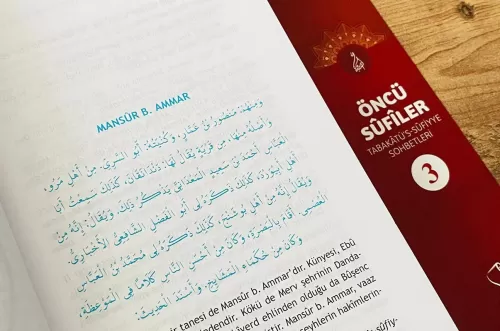 MANSÛR B. AMMAR
وَمِنْهُمْ مَنْصُورُ بْنُ عَمَّارٍ، وَكُنْيَتُهُ: أَبُو السَّرِيِّ، مِنْ أَهْلِ مَرْوَ،
وَأَصْلُهُ مِنْهَا، مِنْ قَرْيَةٍ يُقَالُ لَهَا: دَنْدَانْقَانُ، كَذَلِكَ سَمِعْتُ أَبَا
الْعَبَّاسِ أَحْمَدَ بْنَ سَعِيدٍ الْمَعْدَانِيَّ يَذْكُرُ ذَلِكَ. وَيُقَالُ: إِنَّهُ مِنْ
أَهْلِ أَبِيوَرْدَ، كَذَلِكَ ذَكَرَهُ لِي أَبُو الْفَضْلِ الشَّافِعِيُّ الْأَخْبَارِيُّ.
وَيُقَالُ: إِنَّهُ مِنْ أَهْلِ بُوشَنْجَ، كَذَلِكَ ذَكَرَهُ لِي مُحَمَّدُ بْنُ الْعَبَّاسِ
الْعُصْمِيُّ. أَقَامَ بِالْبَصْرَةِ، وَكَانَ مِنْ أَحْسَنِ النَّاسِ كَلَامًا فِي الْمَوْعِظَةِ،
وَكَانَ مِنْ حُكَمَاءِ الْمَشَايِخِ، وَأَسْنَدَ الْحَدِيثَ.
bir tanesi de Mansûr b. Ammar'dır. Künyesi, Ebû
dendir. Kökü de Merv şehrinin Danda-
verd ehlinden olduğu da Bûşenc
Mansûr b. Ammar, vaaz
hakîmlerin-
sûfiy-
ÖNCÜ
SÛFİLER
TABAKÂTÜ'S-SÛFİYYE
SOHBETLERİ
3